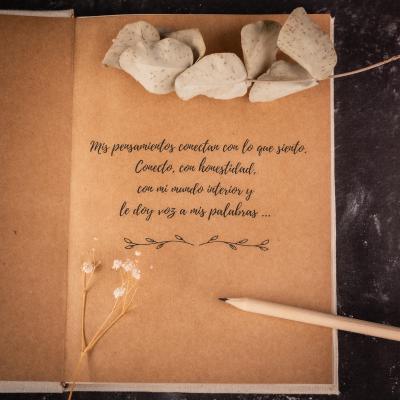 Mis pensamientos conectan con lo que siento.
Conecto, con honestidad,
con mi mundo interior y
le doy voz a mis palabras ...